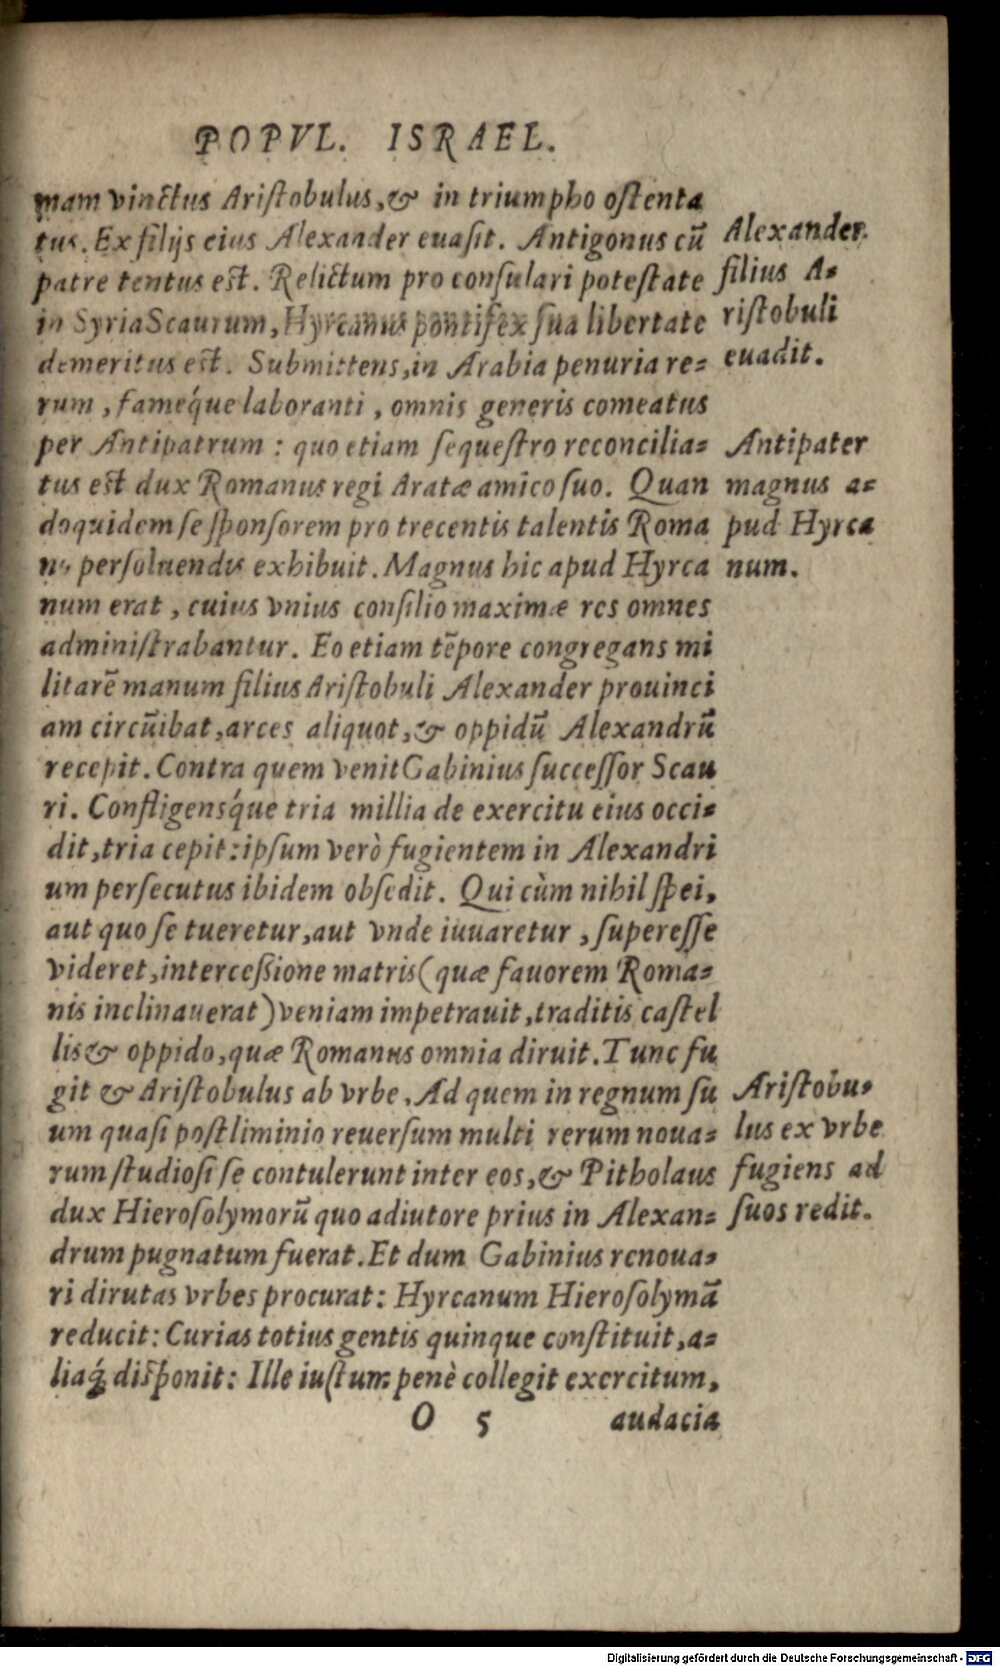 POPVL. ISRAEL.
mam vinctus Aristobulus, & in triumpho ostenta
tus. Ex filijs eius Alexander euasit. Antigonus cū
patre tentus est. Relictum pro consulari potestate
in Syria Scaurum, Hyrcanus pontifex sua libertate
demeritus est. Submittens, in Arabia penuria re=
rum, faméque laboranti, omnis generis comeatus
per Antipatrum: quo etiam sequestro reconcilia=
tus est dux Romanus regi Aratæ amico suo. Quan
doquidem se sponsorem pro trecentis talentis Roma
nis persoluendis exhibuit. Magnus hic apud Hyrca
num erat, cuius vnius consilio maximæ res omnes
administrabantur. Eo etiam tēpore congregans mi
litarē manum filius Aristobuli Alexander prouinci
am circūibat, arces aliquot, & oppidū Alexandrū
recepit. Contra quem venit Gabinius successor Scau
ri. Confligensq́ue tria millia de exercitu eius occi=
dit, tria cepit: ipsum verò fugientem in Alexandri
um persecutus ibidem obsedit. Qui cùm nihil spei,
aut quo se tueretur, aut vnde iuuaretur, superesse
videret, intercessione matris (quæ fauorem Roma=
nis inclinauerat) veniam impetrauit, traditis castel
lis & oppido, quæ Romanus omnia diruit. Tunc fu
git & Aristobulus ab vrbe. Ad quem in regnum su
um quasi postliminio reuersum multi rerum noua=
rum studiosi se contulerunt inter eos, & Pitholaus
dux Hierosolymorū quo adiutore prius in Alexan=
drum pugnatum fuerat. Et dum Gabinius renoua=
ri dirutas vrbes procurat: Hyrcanum Hierosolymā
reducit: Curias totius gentis quinque constituit, a=
liaq́; disponit: Ille iustum penè collegit exercitum,
O 5 audacia
Alexander
filius A=
ristobuli
euadit.
Antipater
magnus a=
pud Hyrca
num.
Aristobu=
lus ex vrbe
fugiens ad
suos redit.
Digitalisierung gefördert durch die Deutsche Forschungsgemeinschaft - DFG